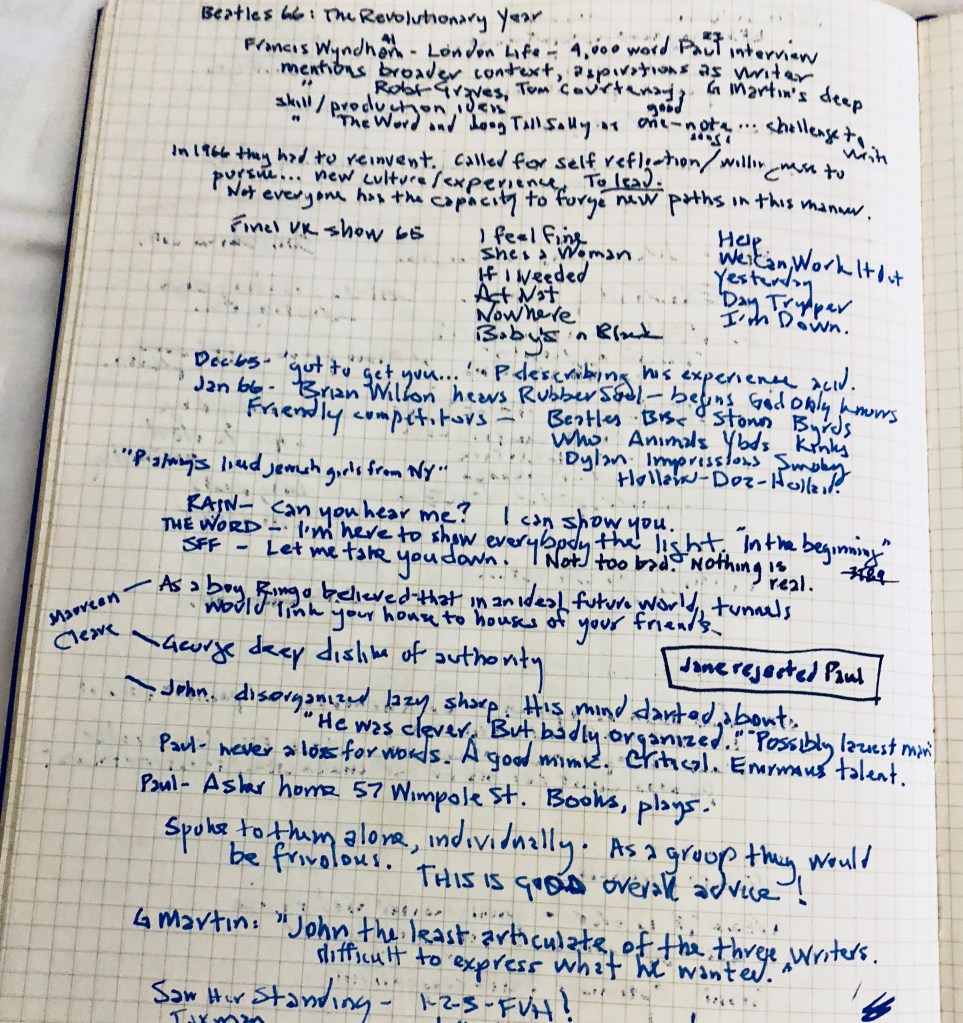 Beatles 66: The Revolutionary Year
Francis Wyndham 41 - London Life - 4,000 word Paul 23 interview
mentions broader context, aspirations as writer
" Robt Graves, Tom Courtenay, G Martin's deep
skill/production ideas
" The Word and Long Tall Sally as good one-note songs ... challenge to write
In 1966 they had to reinvent. Called for self reflection/willingness to
pursue... new culture/experience. To lead.
Not everyone has the capacity to forge new paths in this manner.
Final UK show 65
I feel fine
She's a Woman
If I Needed
Act Nat
Nowhere
Baby's n Black
Help
We Can Work It Out
Yesterday
Day Tripper
I'm Down.
Dec 65- 'got to get you...' P describing his experience acid.
Jan 66- Brian Wilson hears Rubber Soul - begins God Only Knows
Friendly competitors - Beatles BBs Stones Byrds
Who Animals Ybds Kinks
Dylan Impressions Smokey
Holland-Doz-Holland
"P always liked Jewish girls from NY"
RAIN- Can you hear me? I can show you.
THE WORD - I'm here to show everybody the light "In the beginning"
SFF - Let me take you down. Not too bad. Nothing is
real.
Maureen
Cleave
As a boy Ringo believed that in an ideal future world, tunnels
would link your house to houses of your friends.
George deep dislike of authority
Jane rejected Paul
John. disorganized lazy sharp. His mind darted about.
"He was clever. But badly organized." "Possibly laziest man
Paul- never a loss for words. A good mimic. Critical. Enormous talent.
Paul- Asher home 57 Wimpole St. Books, plays.
Spoke to them alone, individually. As a group they would
be frivolous.
THIS IS GOOD overall advice!
G Martin: "John the least articulate of the three writers.
difficult to express what he wanted."
Saw Her Standing - 1-2-3-FVH!
Taxman